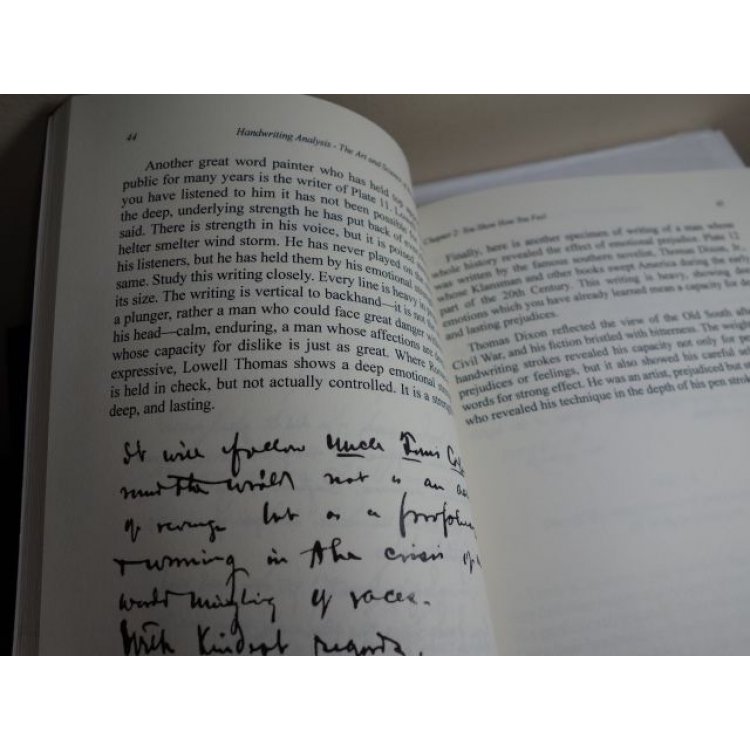 44
Handwriting Analysis - The Art and Science
Another great word painter who has held top
public for many years is the writer of Plate 11. Low
you have listened to him it has not been possible
the deep, underlying strength he has put back of every
said. There is strength in his voice, but it is poised
helter smelter wind storm. He has never played on the
his listeners, but he has held them by his emotional
same. Study this writing closely. Every line is heavy in
its size. The writing is vertical to backhand—it is not the
a plunger, rather a man who could face great danger with
his head—calm, enduring, a man whose affections are deep
whose capacity for dislike is just as great. Where
expressive, Lowell Thomas shows a deep emotional
is held in check, but not actually controlled. It is a
deep, and lasting.
It will follow Uncle Tom's
the world not as an
of revenge but as a
running in the crisis of
world mingling of races.
With kindest regards,
Chapter 2: You Show How You Feel
Finally, here is another specimen of writing of a man whose
whole history revealed the effect of emotional prejudice. Plate 12
was written by the famous southern novelist, Thomas Dixon, Jr.,
whose Klansman and other books swept America during the early
part of the 20th Century. This writing is heavy, showing deep
emotions which you have already learned mean a capacity for deep
and lasting prejudices.
Thomas Dixon reflected the view of the Old South after
Civil War, and his fiction bristled with bitterness. The weight
handwriting strokes revealed his capacity not only for
prejudices or feelings, but it also showed his careful
words for strong effect. He was an artist, prejudiced but
who revealed his technique in the depth of his pen